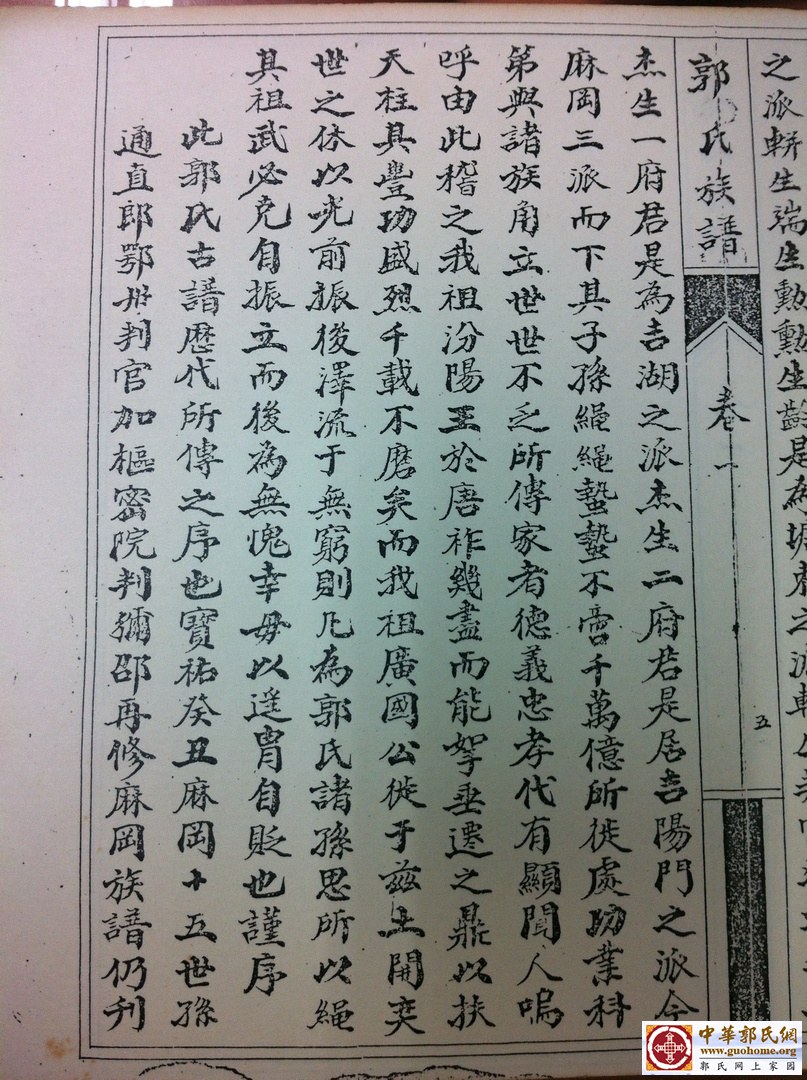 之派輧生端生勳勳生
是為
之派
郭氏族譜
卷一
五
杰生一府君是為吉湖之派杰生二府君是居吉陽門之派今
麻岡三派而下其子孫繩繩蟄蟄不啻千萬億所徙處功業科
第與諸族角立世世不乏所傳家者德義忠孝代有顯聞人嗚
呼由此稽之我祖汾陽王於唐祚幾盡而能挈垂遷之鼎以扶
天柱其豐功盛烈千載不磨矣而我祖廣國公徙于茲土開奕
世之休以光前振後澤流于無窮則凡為郭氏諸孫思所以繩
其祖武必克自振立而後為無愧幸毋以遥胄自貶也謹序
此郭氏古譜歷代所傳之序也寶祐癸丑麻岡十五世孫
通直郎鄂州判官加樞密院判彌邵再修麻岡族譜仍刋
中華郭氏網
www.guohome.org
郭氏網上家園